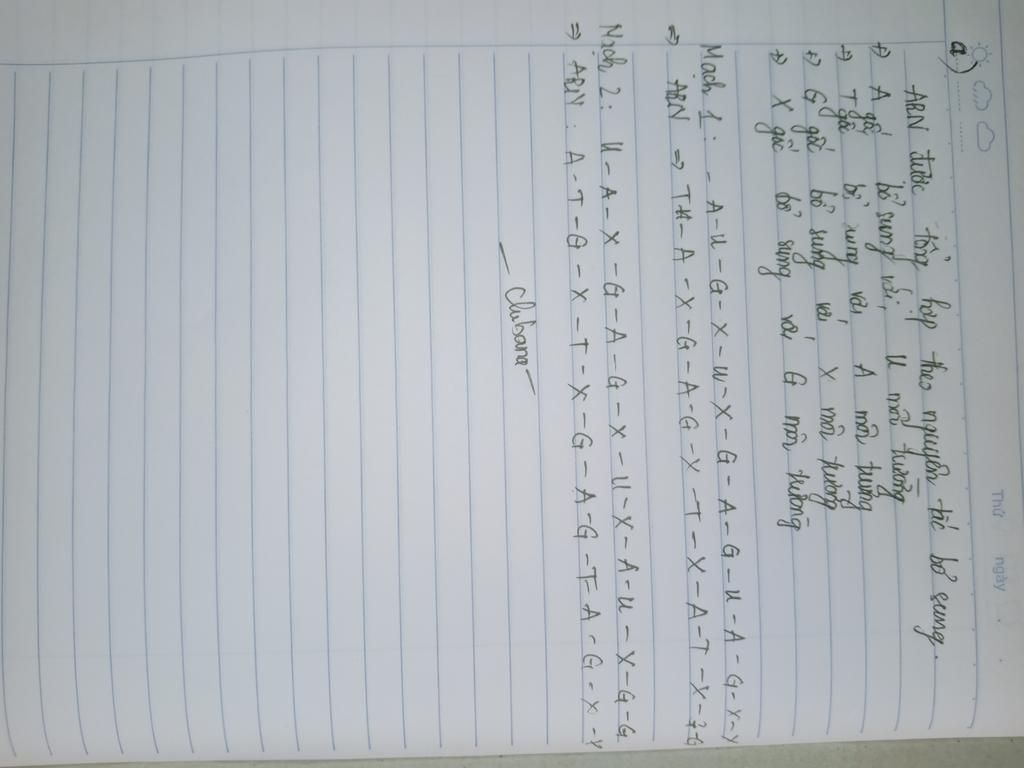 Thứ ngày
a)
ARN được tổng hợp theo nguyên tắc bổ sung.
+) A gốc bổ sung với U môi trường
+) T gốc bổ sung với A môi trường
+) G gốc bổ sung với X môi trường
+) X gốc bổ sung với G môi trường
Mạch 1: - A-U-G-X-U-X-G-A-G-U-A-G-X-Y
⇒ ARN ⇒ T-A-X-G-A-G-X-T-X-A-T-X-G
Mạch 2: U-A-X-G-A-G-X-U-X-A-U-X-G-G
⇒ ARN: A-T-G-X-T-X-G-A-G-T-A-G-X-Y